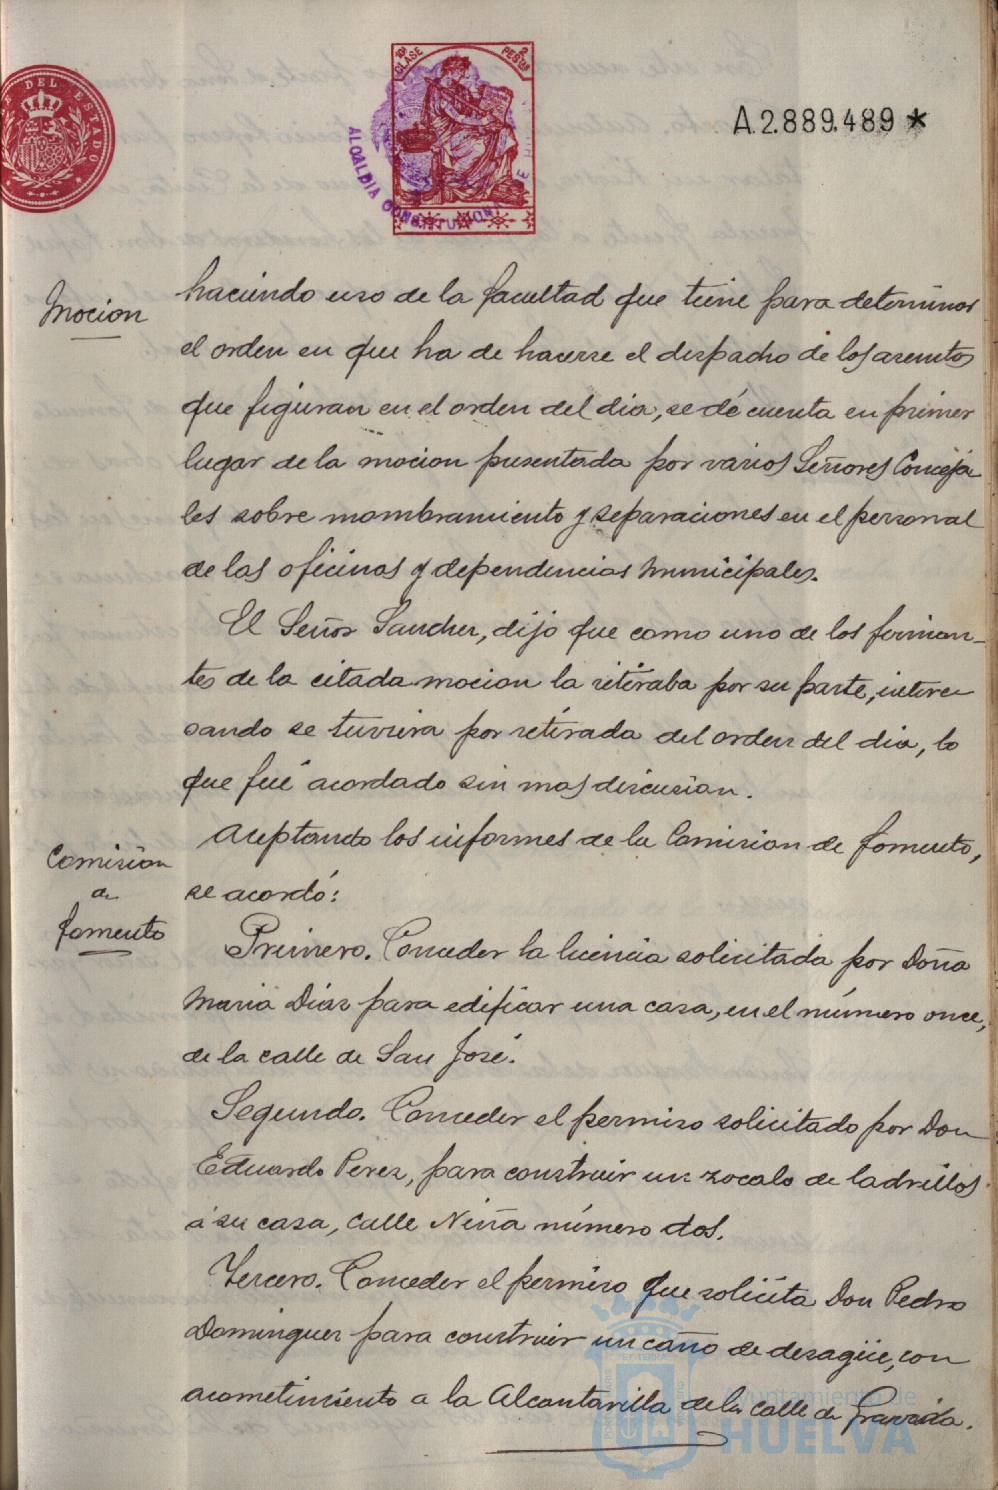 DEL ESTADO
10ª CLASE
2 PESTAS
ALCALDIA CONSTITUCIONAL DE
A.2.889.489 *
Mocion
haciendo uso de la facultad que tiene para determinar
el orden en que ha de hacerse el despacho de los asuntos
que figuran en el orden del dia, se dé cuenta en primer
lugar de la mocion presentada por varios Señores Conceja
les sobre nombramiento y separaciones en el personal
de las oficinas y dependencias Municipales.
El Señor Sanchez, dijo que como uno de los firman-
tes de la citada mocion la retiraba por su parte, intere-
sando se tuviera por retirada del orden del dia, lo
que fué acordado sin mas discusion.
Comision
de
fomento
Aceptando los informes de la Comision de fomento,
se acordó:
Primero. Conceder la licencia solicitada por Doña
Maria Diaz para edificar una casa, en el número once,
de la calle de San José.
Segundo. Conceder el permiso solicitado por Don
Eduardo Perez, para construir un zocalo de ladrillos
á su casa, calle Niña número dos.
Tercero. Conceder el permiso que solicita Don Pedro
Dominguez para construir un caño de desagüe, con
acometimiento a la Alcantarilla de la calle de
Ayuntamiento de
HUELVA